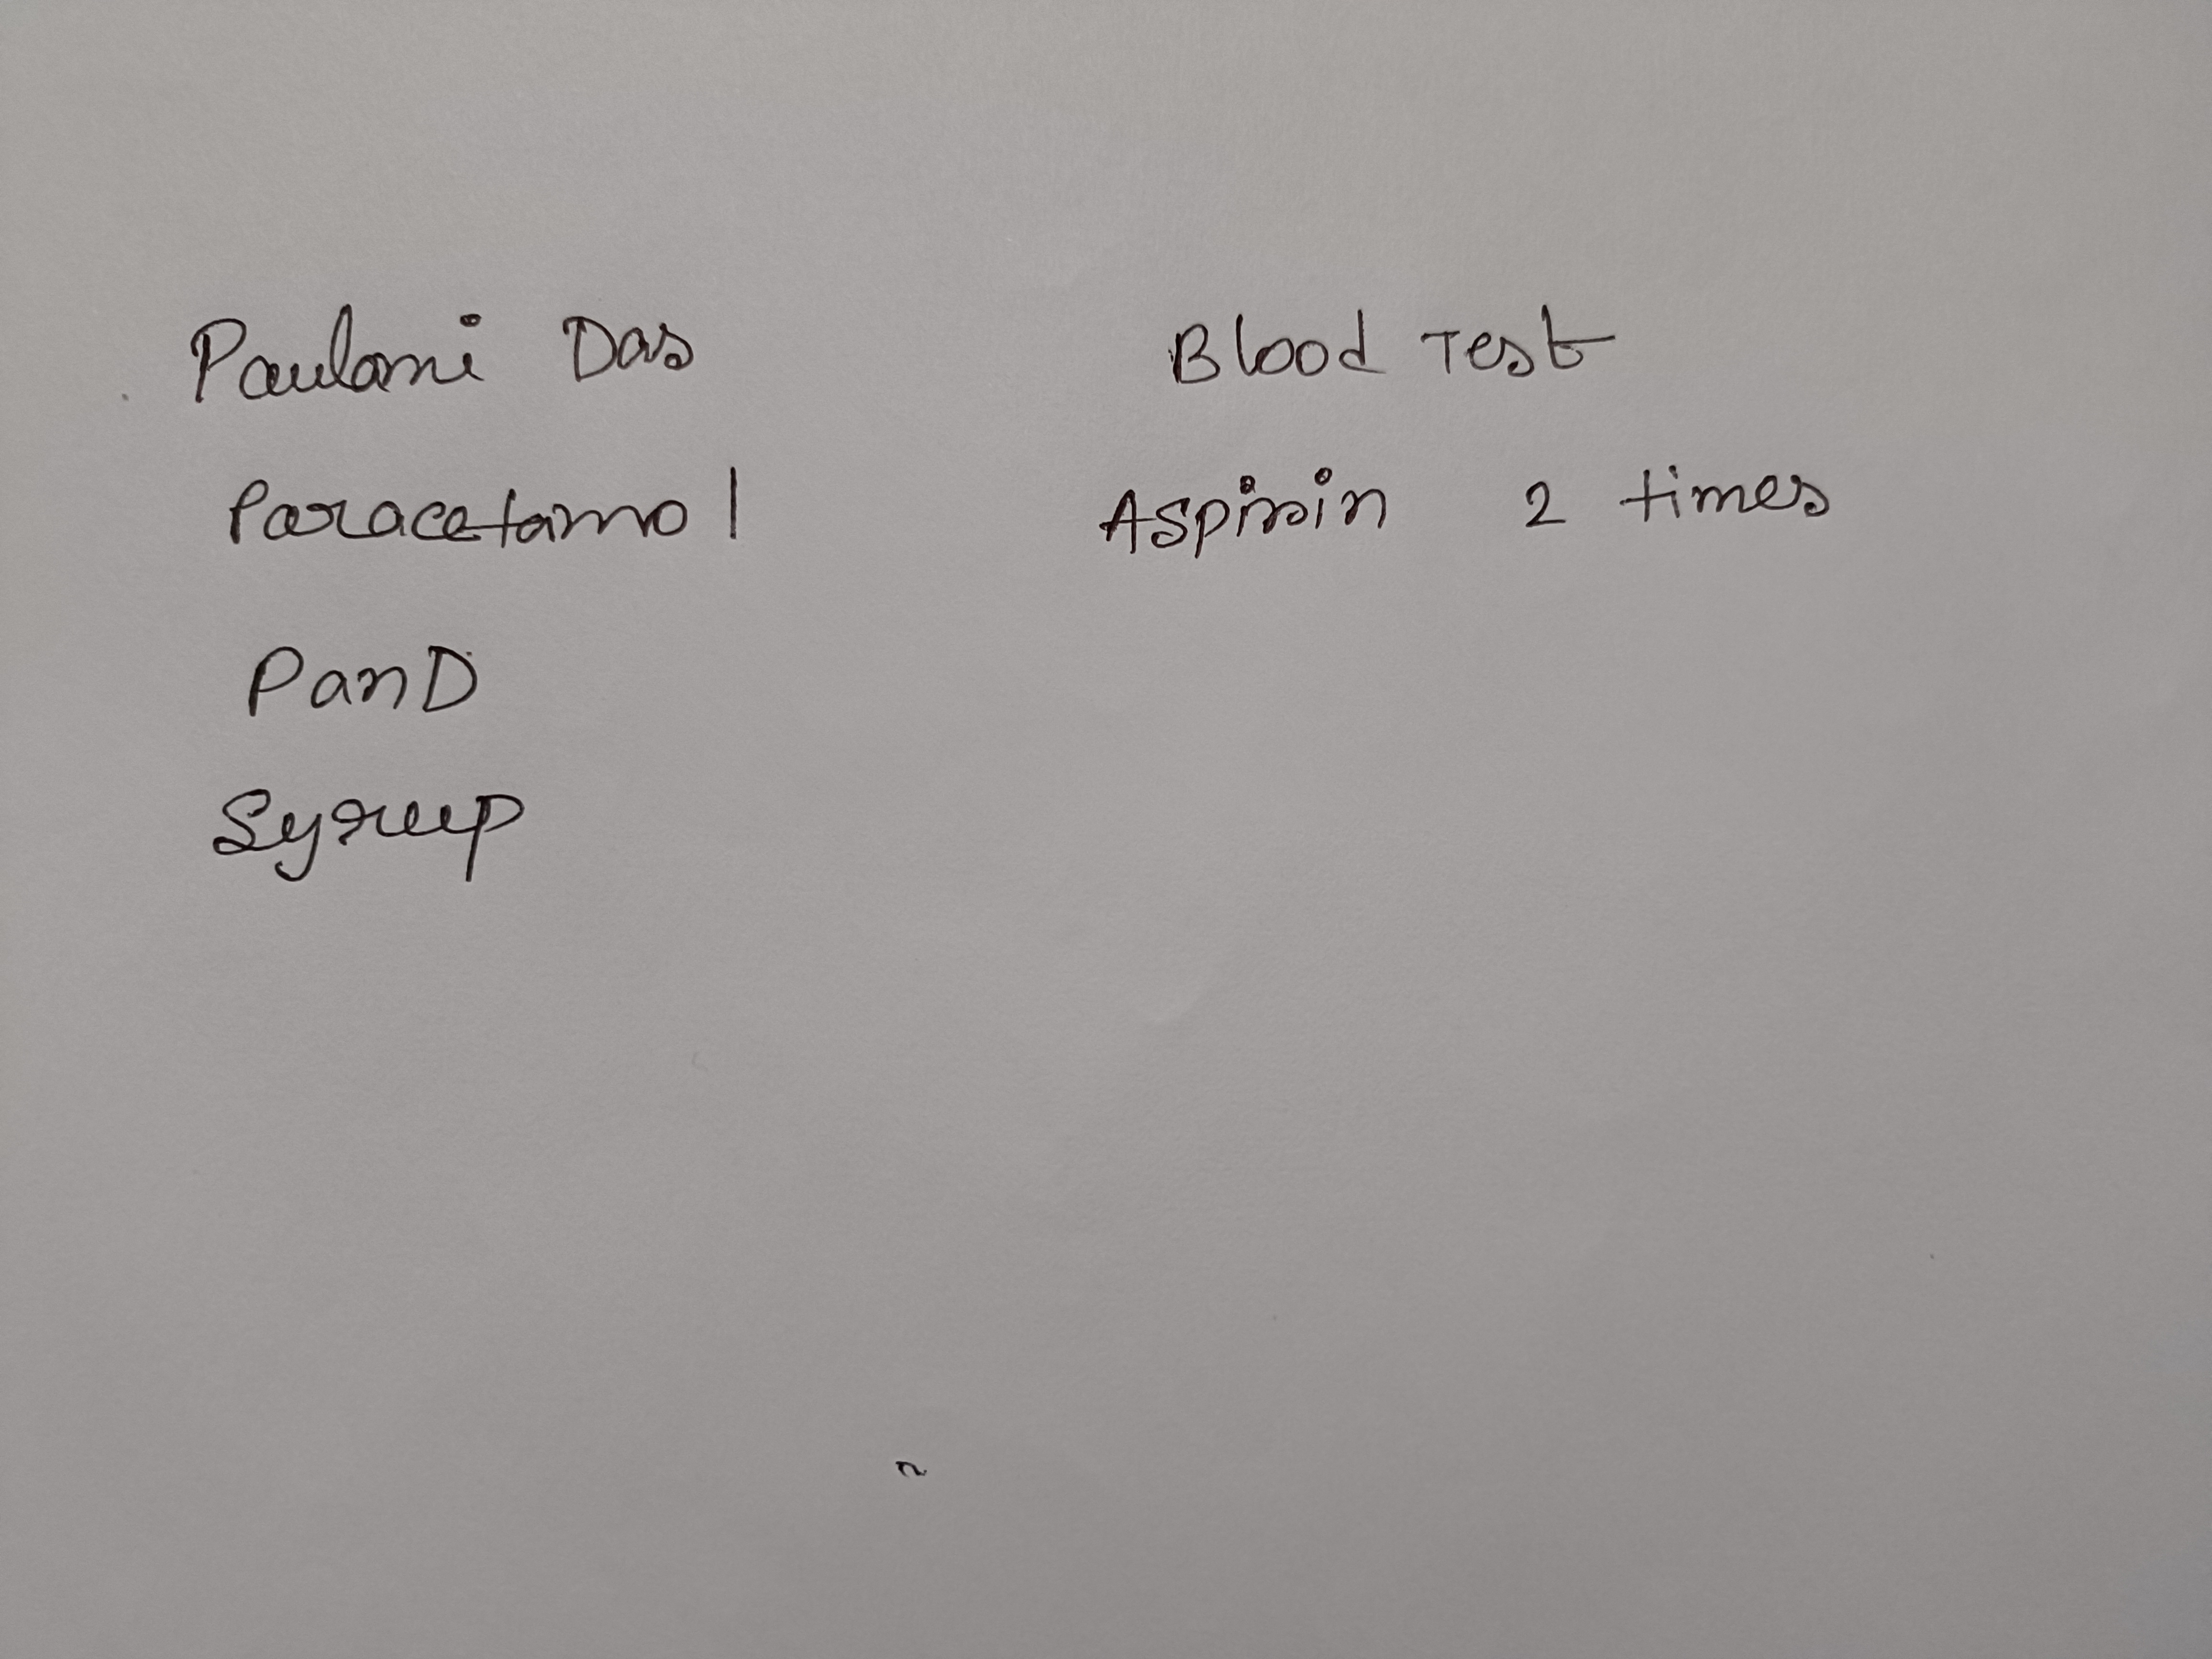 Paulami Das
Paracetamol
PanD
Syrup
Blood Test
Aspirin 2 times